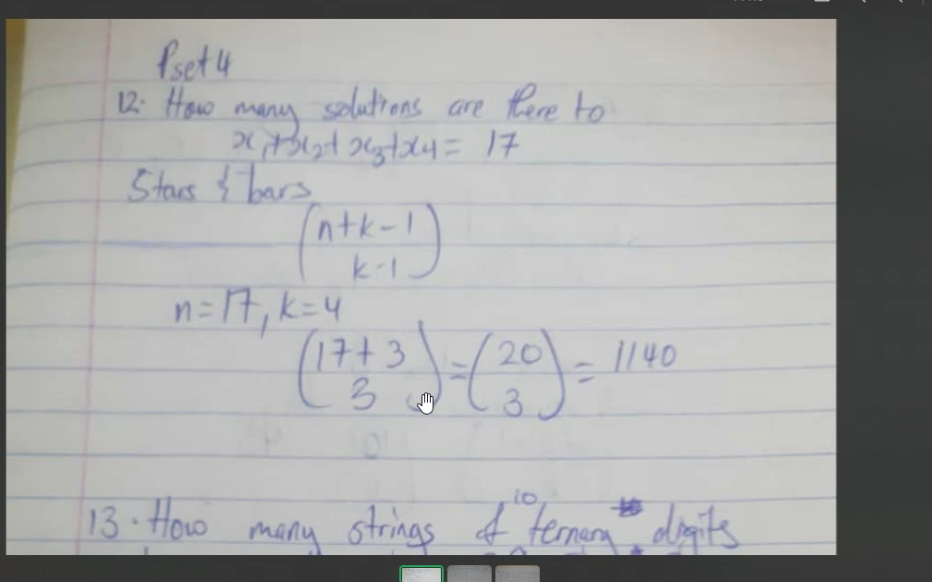 Pset 4
12. How many solutions are there to
x₁+x₂+x₃+x₄ = 17
Stars & bars
(n+k-1
k-1)
n=17, k=4
(17+3
3) = (20
3) = 1140
13. How many strings of 10 ternary digits